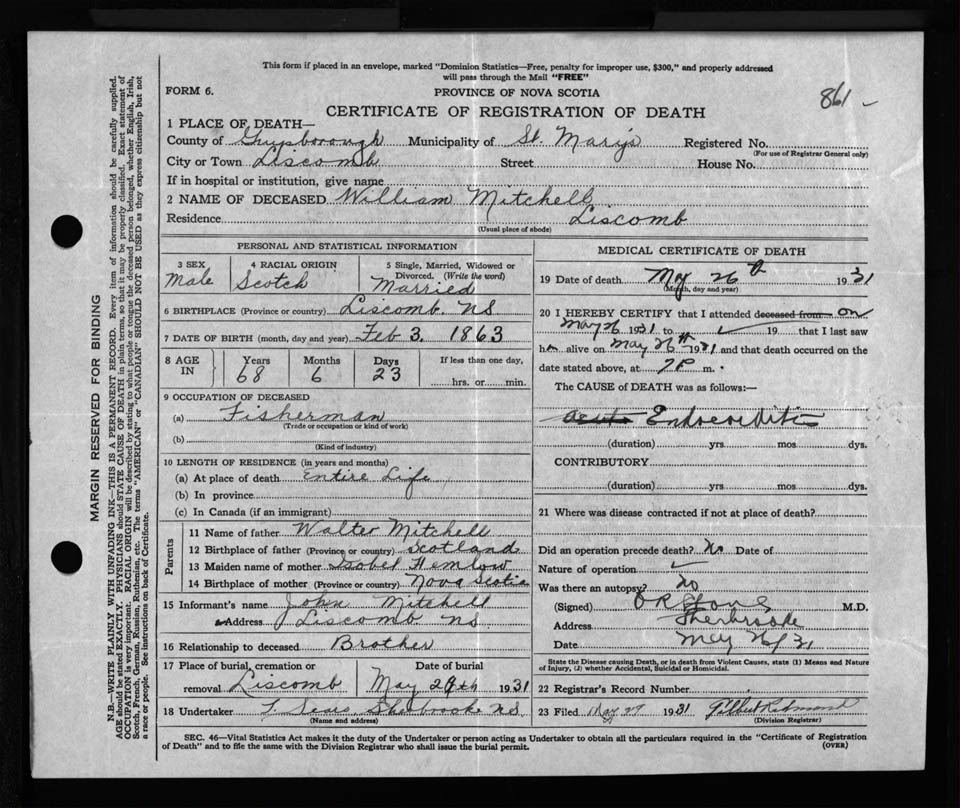 This form if placed in an envelope, marked "Dominion Statistics—Free, penalty for improper use, $300," and properly addressed
will pass through the Mail "FREE"
FORM 6.
PROVINCE OF NOVA SCOTIA
861
CERTIFICATE OF REGISTRATION OF DEATH
1 PLACE OF DEATH—
County of Guysborough Municipality of St. Mary's Registered No.
(For use of Registrar General only)
City or Town Liscomb Street House No.
If in hospital or institution, give name
2 NAME OF DECEASED William Mitchell
Residence Liscomb
(Usual place of abode)
PERSONAL AND STATISTICAL INFORMATION
3 SEX Male
4 RACIAL ORIGIN Scotch
5 Single, Married, Widowed or Divorced. (Write the word) Married
6 BIRTHPLACE (Province or country) Liscomb. NS
7 DATE OF BIRTH (month, day and year) Feb 3. 1863
8 AGE IN Years 68 Months 6 Days 23 If less than one day,
hrs. or min.
9 OCCUPATION OF DECEASED
(a) Fisherman
(Trade or occupation or kind of work)
(b)
(Kind of industry)
10 LENGTH OF RESIDENCE (in years and months)
(a) At place of death Entire Life
(b) In province
(c) In Canada (if an immigrant)
Parents
11 Name of father Walter Mitchell
12 Birthplace of father (Province or country) Scotland
13 Maiden name of mother Isobel Hemlow
14 Birthplace of mother (Province or country) Nova Scotia
15 Informant's name John Mitchell
Address Liscomb NS.
16 Relationship to deceased Brother
17 Place of burial, cremation or removal Liscomb
Date of burial May 29th 1931
18 Undertaker Sherbrooke NS.
(Name and address)
MEDICAL CERTIFICATE OF DEATH
19 Date of death May 26th 1931
(Month, day and year)
20 I HEREBY CERTIFY that I attended deceased from on
May 26 1931 to 19 that I last saw
h alive on May 26th 1931 and that death occurred on the
date stated above, at 7P m.
The CAUSE of DEATH was as follows:—
Acute Endocarditis
(duration) yrs. mos. dys.
CONTRIBUTORY
(duration) yrs. mos. dys.
21 Where was disease contracted if not at place of death?
Did an operation precede death? No Date of
Nature of operation
Was there an autopsy? No
(Signed) M.D.
Address Sherbrooke
Date May 26/31
State the Disease causing Death, or in death from Violent Causes, state (1) Means and Nature
of Injury, (2) whether Accidental, Suicidal or Homicidal.
22 Registrar's Record Number
23 Filed May 27 1931 Gilbert
(Division Registrar)
SEC. 46—Vital Statistics Act makes it the duty of the Undertaker or person acting as Undertaker to obtain all the particulars required in the "Certificate of Registration
of Death" and to file the same with the Division Registrar who shall issue the burial permit.
(OVER)
MARGIN RESERVED FOR BINDING
N.B.—WRITE PLAINLY WITH UNFADING INK—THIS IS A PERMANENT RECORD. Every item of information should be carefully supplied.
AGE should be stated EXACTLY. PHYSICIANS should STATE CAUSE OF DEATH in plain terms, so that it may be properly classified. Exact statement of
OCCUPATION is very important. RACIAL ORIGIN will be described by stating to what people or tongue the deceased person belonged, whether English, Irish,
Scotch, French, German, Russian, Ruthenian, etc. The terms "AMERICAN" or "CANADIAN" SHOULD NOT BE USED as they express citizenship but not
a race or people. See instructions on back of Certificate.